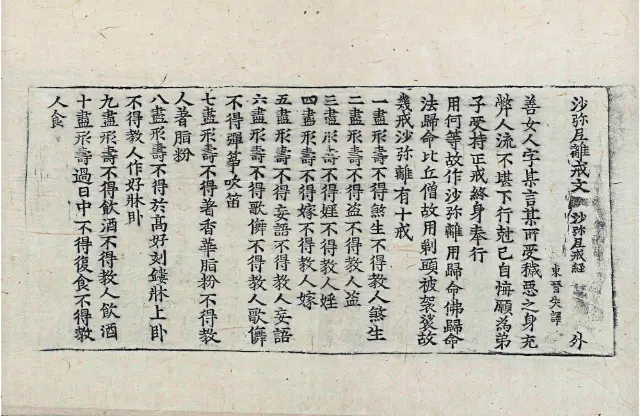 沙弥尼離戒文 沙弥尼戒経 外
東晉失譯
善女人字某言某所受穢惡之身充
弊人流不堪下行尅己自悔願為弟
子受持正戒終身奉行
用何等故作沙弥離用歸命佛歸命
法歸命比丘僧故用剃頭被袈裟故
幾戒沙弥離有十戒
一盡形壽不得煞生不得教人煞生
二盡形壽不得盗不得教人盗
三盡形壽不得婬不得教人婬
四盡形壽不得嫁不得教人嫁
五盡形壽不得妄語不得教人妄語
六盡形壽不得歌儛不得教人歌儛
不得彈箏吹笛
七盡形壽不得著香華脂粉不得教
人著脂粉
八盡形壽不得於高好刻鏤牀上卧
不得教人作好牀卧
九盡形壽不得飲酒不得教人飲酒
十盡形壽過日中不得復食不得教
人食